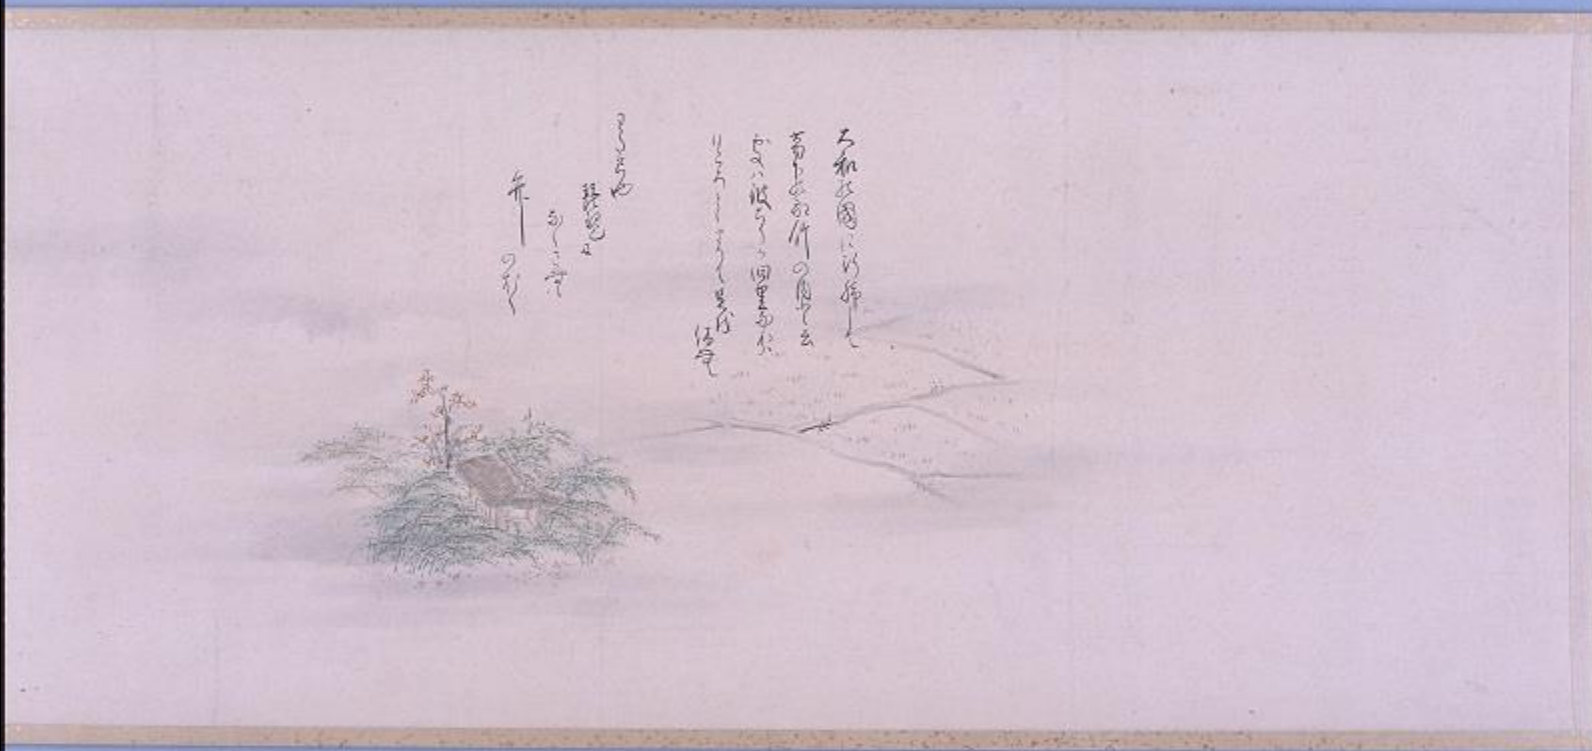 大和の國に行脚して
葛下の郡竹の内と云
処ハ彼ちりか旧里なれは
日ころとゝまりて足を
休む
わた弓や
琵琶に
なくさむ
竹のおく